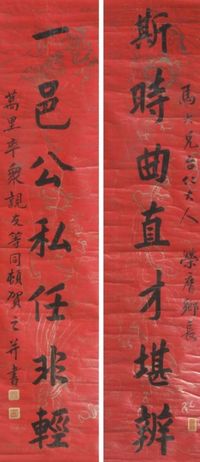 馬大兄台仁大人 榮膺鄉長
斯時曲直才堪辦
一邑公私任非輕
萬里率衆親友等同頓賀之并書